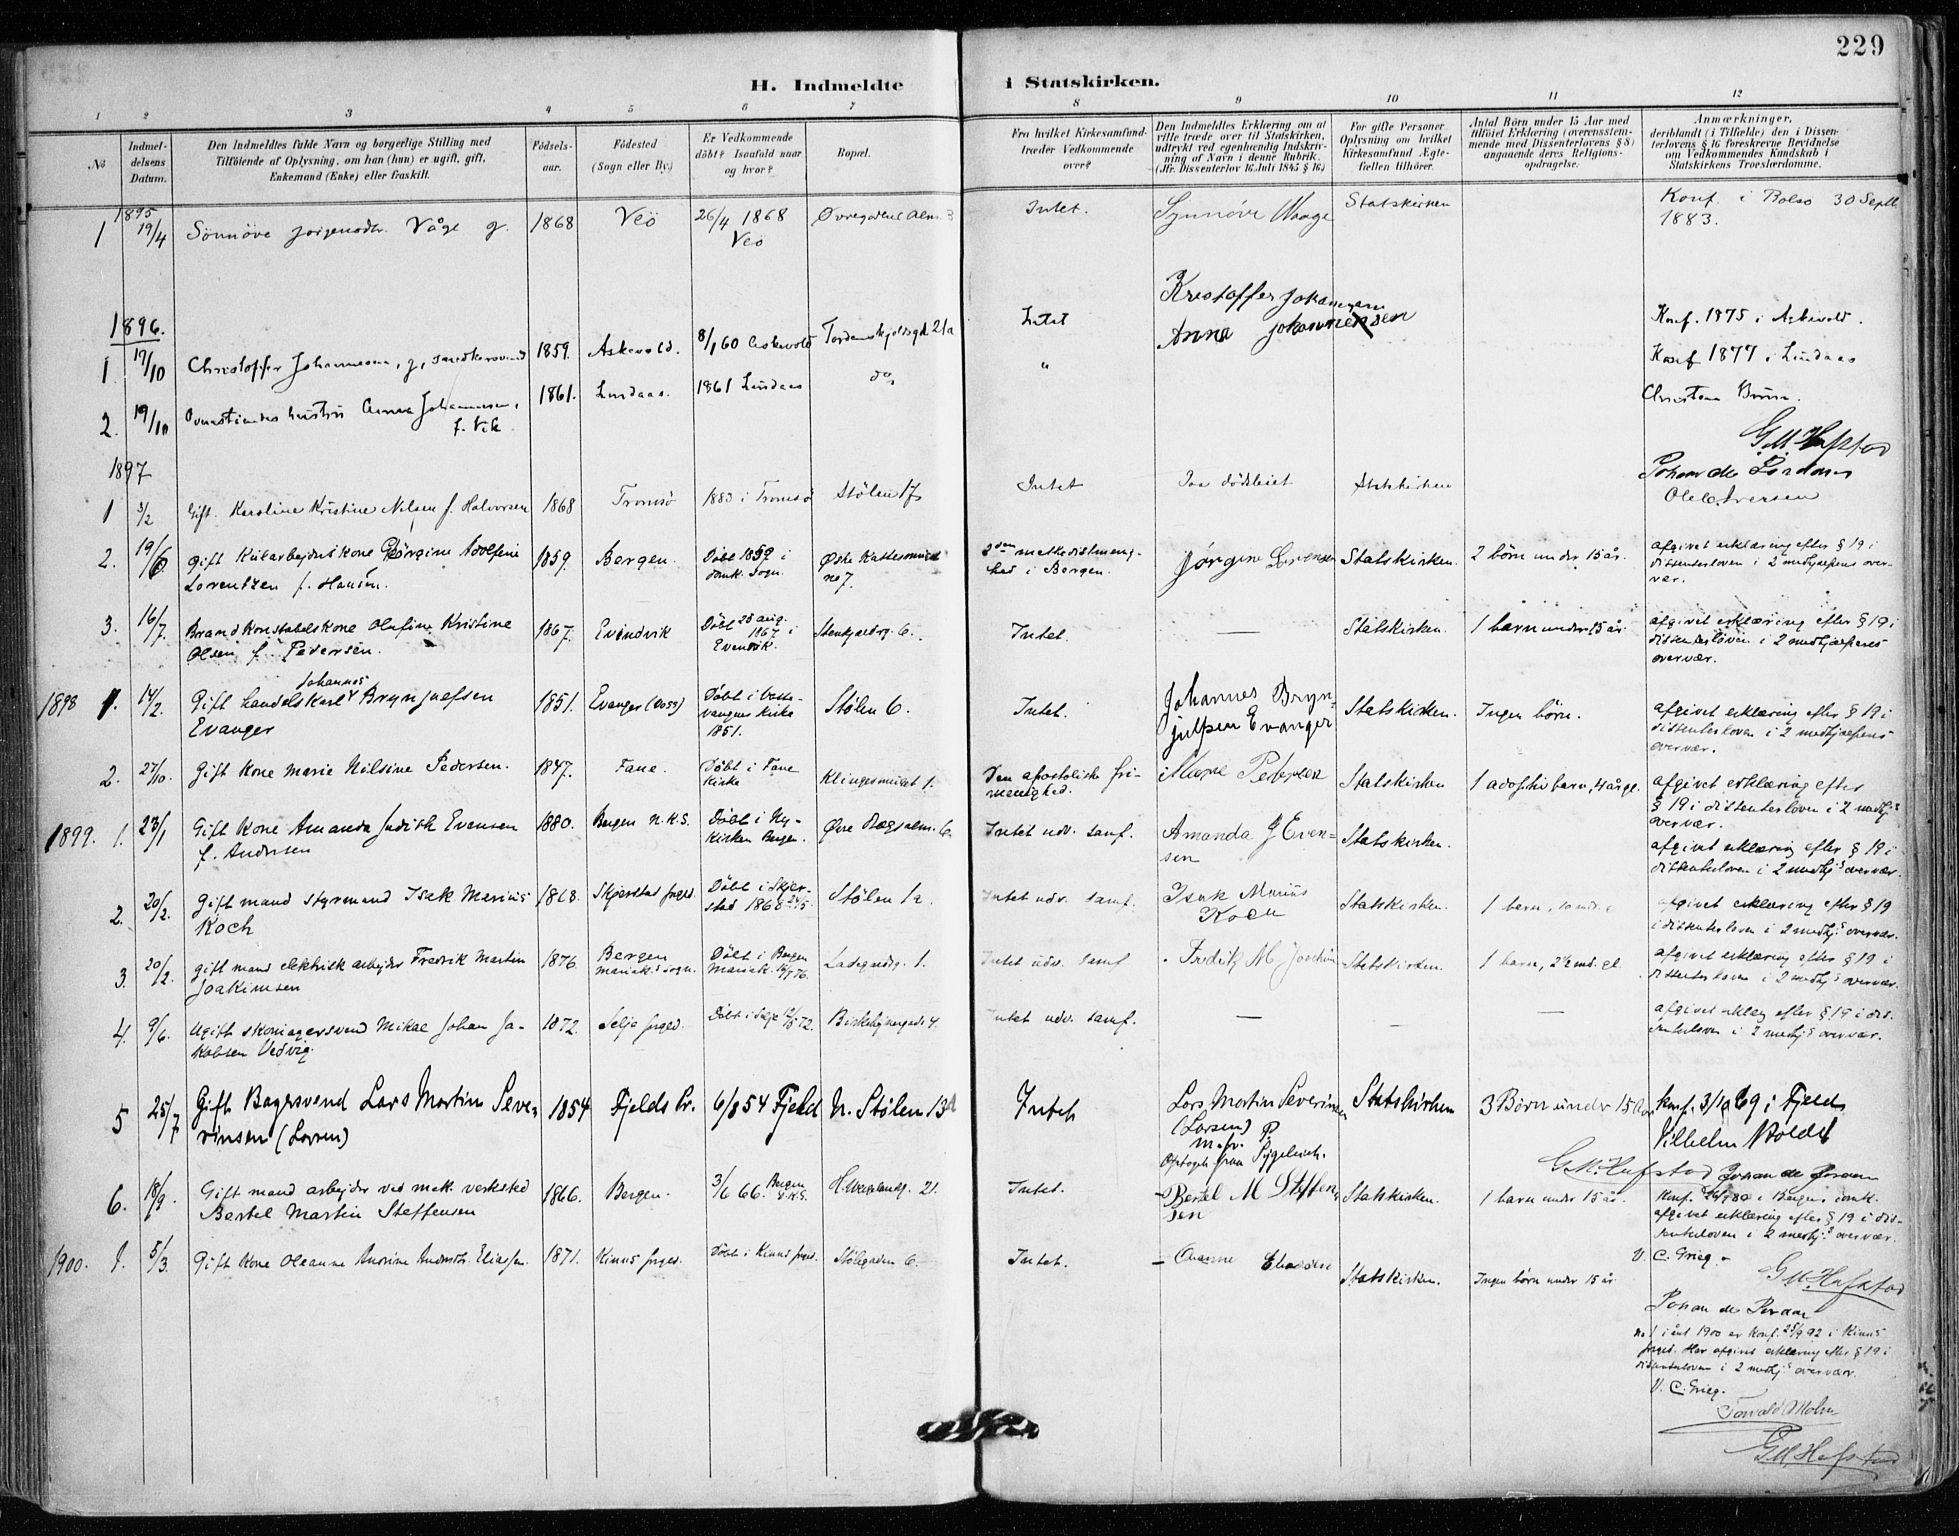 229
H. Indmeldte i Statskirken.
1 2 3 4 5 6 7 8 9 10 11 12
No
Indmel-
delsens
Datum.
Den Indmeldtes fulde Navn og borgerlige Stilling med
Tilföiende af Oplysning, om han (hun) er ugift, gift,
Enkemand (Enke) eller fraskilt.
Födsels-
aar.
Födested
(Sogn eller By.)
Er Vedkommende
döbt? Isaafald naar
og hvor?
Bopæl.
Fra hvilket Kirkesamfund
træder Vedkommende
over?
Den Indmeldtes Erklæring om at
ville træde over til Statskirken,
udtrykt ved egenhændig Indskriv-
ning af Navn i denne Rubrik.
(Jfr. Dissenterlov 16 Juli 1845 § 16.)
For gifte Personer
Oplysning om hvilket
Kirkesamfund Ægte-
fællen tilhörer.
Antal Börn under 15 Aar med
tilföiet Erklæring (overensstem-
mende med Dissenterlovens § 8)
angaaende deres Religions-
opdragelse.
Anmærkninger,
deriblandt (i Tilfælde) den i Dissen-
terlovens § 16 foreskrevne Bevidnelse
om Vedkommendes Kundskab i
Statskirkens Troeslærdomme.
1895
1 19/4 Sönnöve Jörgensdtr. Våge g. 1868 Veö 26/4 1868 Veö Øvregadens Alm. 3 Intet. Synnöve Waage Statskirken Konf. i Bolsö 30 Septb. 1883.
1896.
1 17/10 Christoffer Johannesen, g, 1859. Askevold. 8/1 60 Askevold Tordenskjoldsgd 21a Intet Kristoffer Johannesen Konf. 1875 i Askevold.
2. 19/10 Ovenstaaendes hustru Anna Johannesen, f. Vik 1861. Lindaas. 1861 Lindaas do " Anna Johannesen Konf 1877 i Lindaas
Christian Bruun.
G M Hafstad
1897
Johan de Pordaas
1 3/2 Gift. Karoline Kristine Nilsen f. Halvorsen 1868 Tromsö 1883 i Tromsö Stölen 17 Intet Paa dödsleiet Statskirken Ole Iversen
2. 19/6 Gift Kularbeiderskone Jörgine Adolfine
Lorentzen f. Hansen. 1859. Bergen. Döbt 1859 i
domk. sogn. Østre Kattesmuget
no 7. 2den methodistmenig-
hed i Bergen. Jörgine Lorensen Statskirken. 2 börn under 15 år. afgivet erklæring efter § 19 i
dissenterloven i 2 medhjælperes over-
vær.
3. 16/7. Brandkonstabelskone Olafine Kristine
Olsen f. Pedersen. 1867. Evindvik Döbt 25 aug.
1867 i
Evindvik. Stenkjeldrg. 6. Intet. — Statskirken. 1 barn under 15 år. afgivet erklæring efter § 19 i
dissenterloven i 2 medhjælperes
overvær.
1898 1. 14/2. Gift handelskarl Johannes Brynjulfsen
Evanger 1851. Evanger (Voss) Döbt i Vosse-
vangens kirke
1851. Stölen 6. Intet. Johannes Bryn-
julfsen Evanger Statskirken. Ingen börn. afgivet erklæring efter § 19 i
dissenterloven i 2 medhjælperes
overvær.
2. 27/10. Gift kone Marie Nilsine Pedersen. 1847. Fane. Döbt i Fane
kirke Klingesmuget 1. Den apostoliske fri-
menighed. Marie Pedersen Statskirken 1 adoptivbarn, 4 år gl. afgivet erklæring efter
§ 19 i dissenterloven i 2 medhj.s
overvær.
1899. 1. 23/1 Gift kone Amanda Judith Evensen
f. Andersen 1880. Bergen N.K.S. Döbt i Ny-
kirken Bergen. Øvre Dregsalm. 6 Intet udv. samf. Amanda J Even-
sen Statskirken. afgivet erklæring efter § 19 i
dissenterloven i 2 medhj.s overvær.
2. 20/2. Gift mand styrmand Isak Marius
Koch 1868. Skjerstad prgd. Döbt i Skjer-
stad 1868 24/5. Stölen 1a. Intet udv. samf. Isak Marius
Koch Statskirken. 1 barn, afgivet erklæring efter § 19
i dissenterloven i 2 medhj.s overvær.
3. 20/2. Gift mand elektrisk arbejder Fredrik Martin
Joakimsen 1876. Bergen
Mariak. sogn. Döbt i Bergen
Mariak. Ladegårdsg. 1. Intet udv. samf Fredrik M Joachim Statskirken. 1 barn, 2½ md. gl. afgivet erklæring efter § 19 i
dissenterloven i 2 medhj.s overvær.
4. 9/6. Ugift skomagersvend Mikal Johan Ja-
kobsen Vedvig. 1872. Selje prgd. Döbt i Selje Birkebeinergade 4. Intet udv. samf. — — — afgivet erklærg efter § 19 i dis-
senterloven i 2 medhj.s overvær.
5 25/7 Gift Bagersvend Lars Martin Seve-
rinsen (Larsen) 1854 Fjelds Pr. 6/8 54 Fjeld N. Stölen 13A Intet Lars Martin Severinsen
(Larsen)
m. f. P.
Optaget paa Sygeleiet. Statskirken 3 Börn under 15 Aar Konf. 3/10 69 i Fjeld
Vilhelm Boldt
G M Hafstad Johan de Pordaas
6. 18/9. Gift mand arbejder ved mek. verksted
Bertel Martin Steffensen 1866. Bergen. 3/6 66. Bergen H. Wergelandsg. 21. Intet. Bertel M Steffen-
sen Statskirken. 1 barn under 15 år. Konf. 1880 i Bergens domk.
afgivet erklæring efter § 19 i dis-
senterloven i 2 medhj.s overvær.
V. C. Grieg.
G M Hafstad
Johan de Pordaas
1900. 1. 5/3. Gift kone Oleanne Eliassen. 1871. Kinns prgd. Döbt i Kinns prgd. Stölegaden 6. Intet. Statskirken. Ingen börn under 15 år
No 1 i året 1900 er konf. 25/9 92 i Kinns
prgd. Har afgivet erklæring efter § 19 i
dissenterloven i 2 medhj.s overvær.
V. C. Grieg.
Torvald Mohn
G M Hafstad